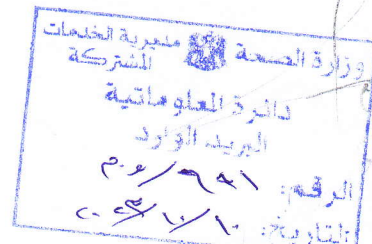 وزارة الصحة مديرية الخدمات
المشتركة
دائرة المعلوماتية
البريد الوارد
الرقم:
التاريخ: